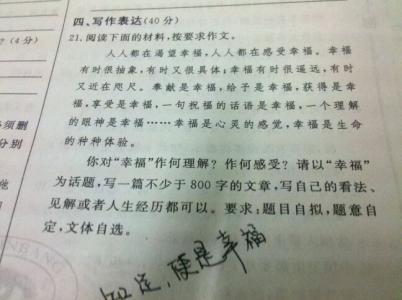 四、写作表达(40分)
?(4分)
21. 阅读下面的材料,按要求作文。
人人都在渴望幸福,人人都在感受幸福。幸福
有时很抽象,有时又很具体;幸福有时很遥远,有时
又近在咫尺。奉献是幸福,给予是幸福,获得是幸
福,享受是幸福,一句祝福的话语是幸福,一个理解
的眼神是幸福……幸福是心灵的感觉,幸福是生命
的种种体验。
必须删
分别
你对“幸福”作何理解?作何感受?请以“幸福”
他
为话题,写一篇不少于800字的文章,写自己的看法、
见解或者人生经历都可以。要求:题目自拟,题意自
定,文体自选。
知足,便是幸福